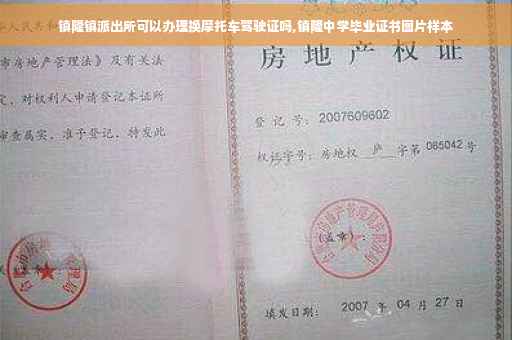 镇隆镇派出所可以办理换摩托车驾驶证吗,镇隆中学毕业证书图片样本
华人民共和
市房地产管理法》及有关法
定,对权利人申请登记本证所
审查属实,准予登记,特发此
房地产权
登 记 号: 2007609602
权证字号:房地权 庐 字第 085042 号
(盖章):
填发日期: 2007 年 04 月 27 日